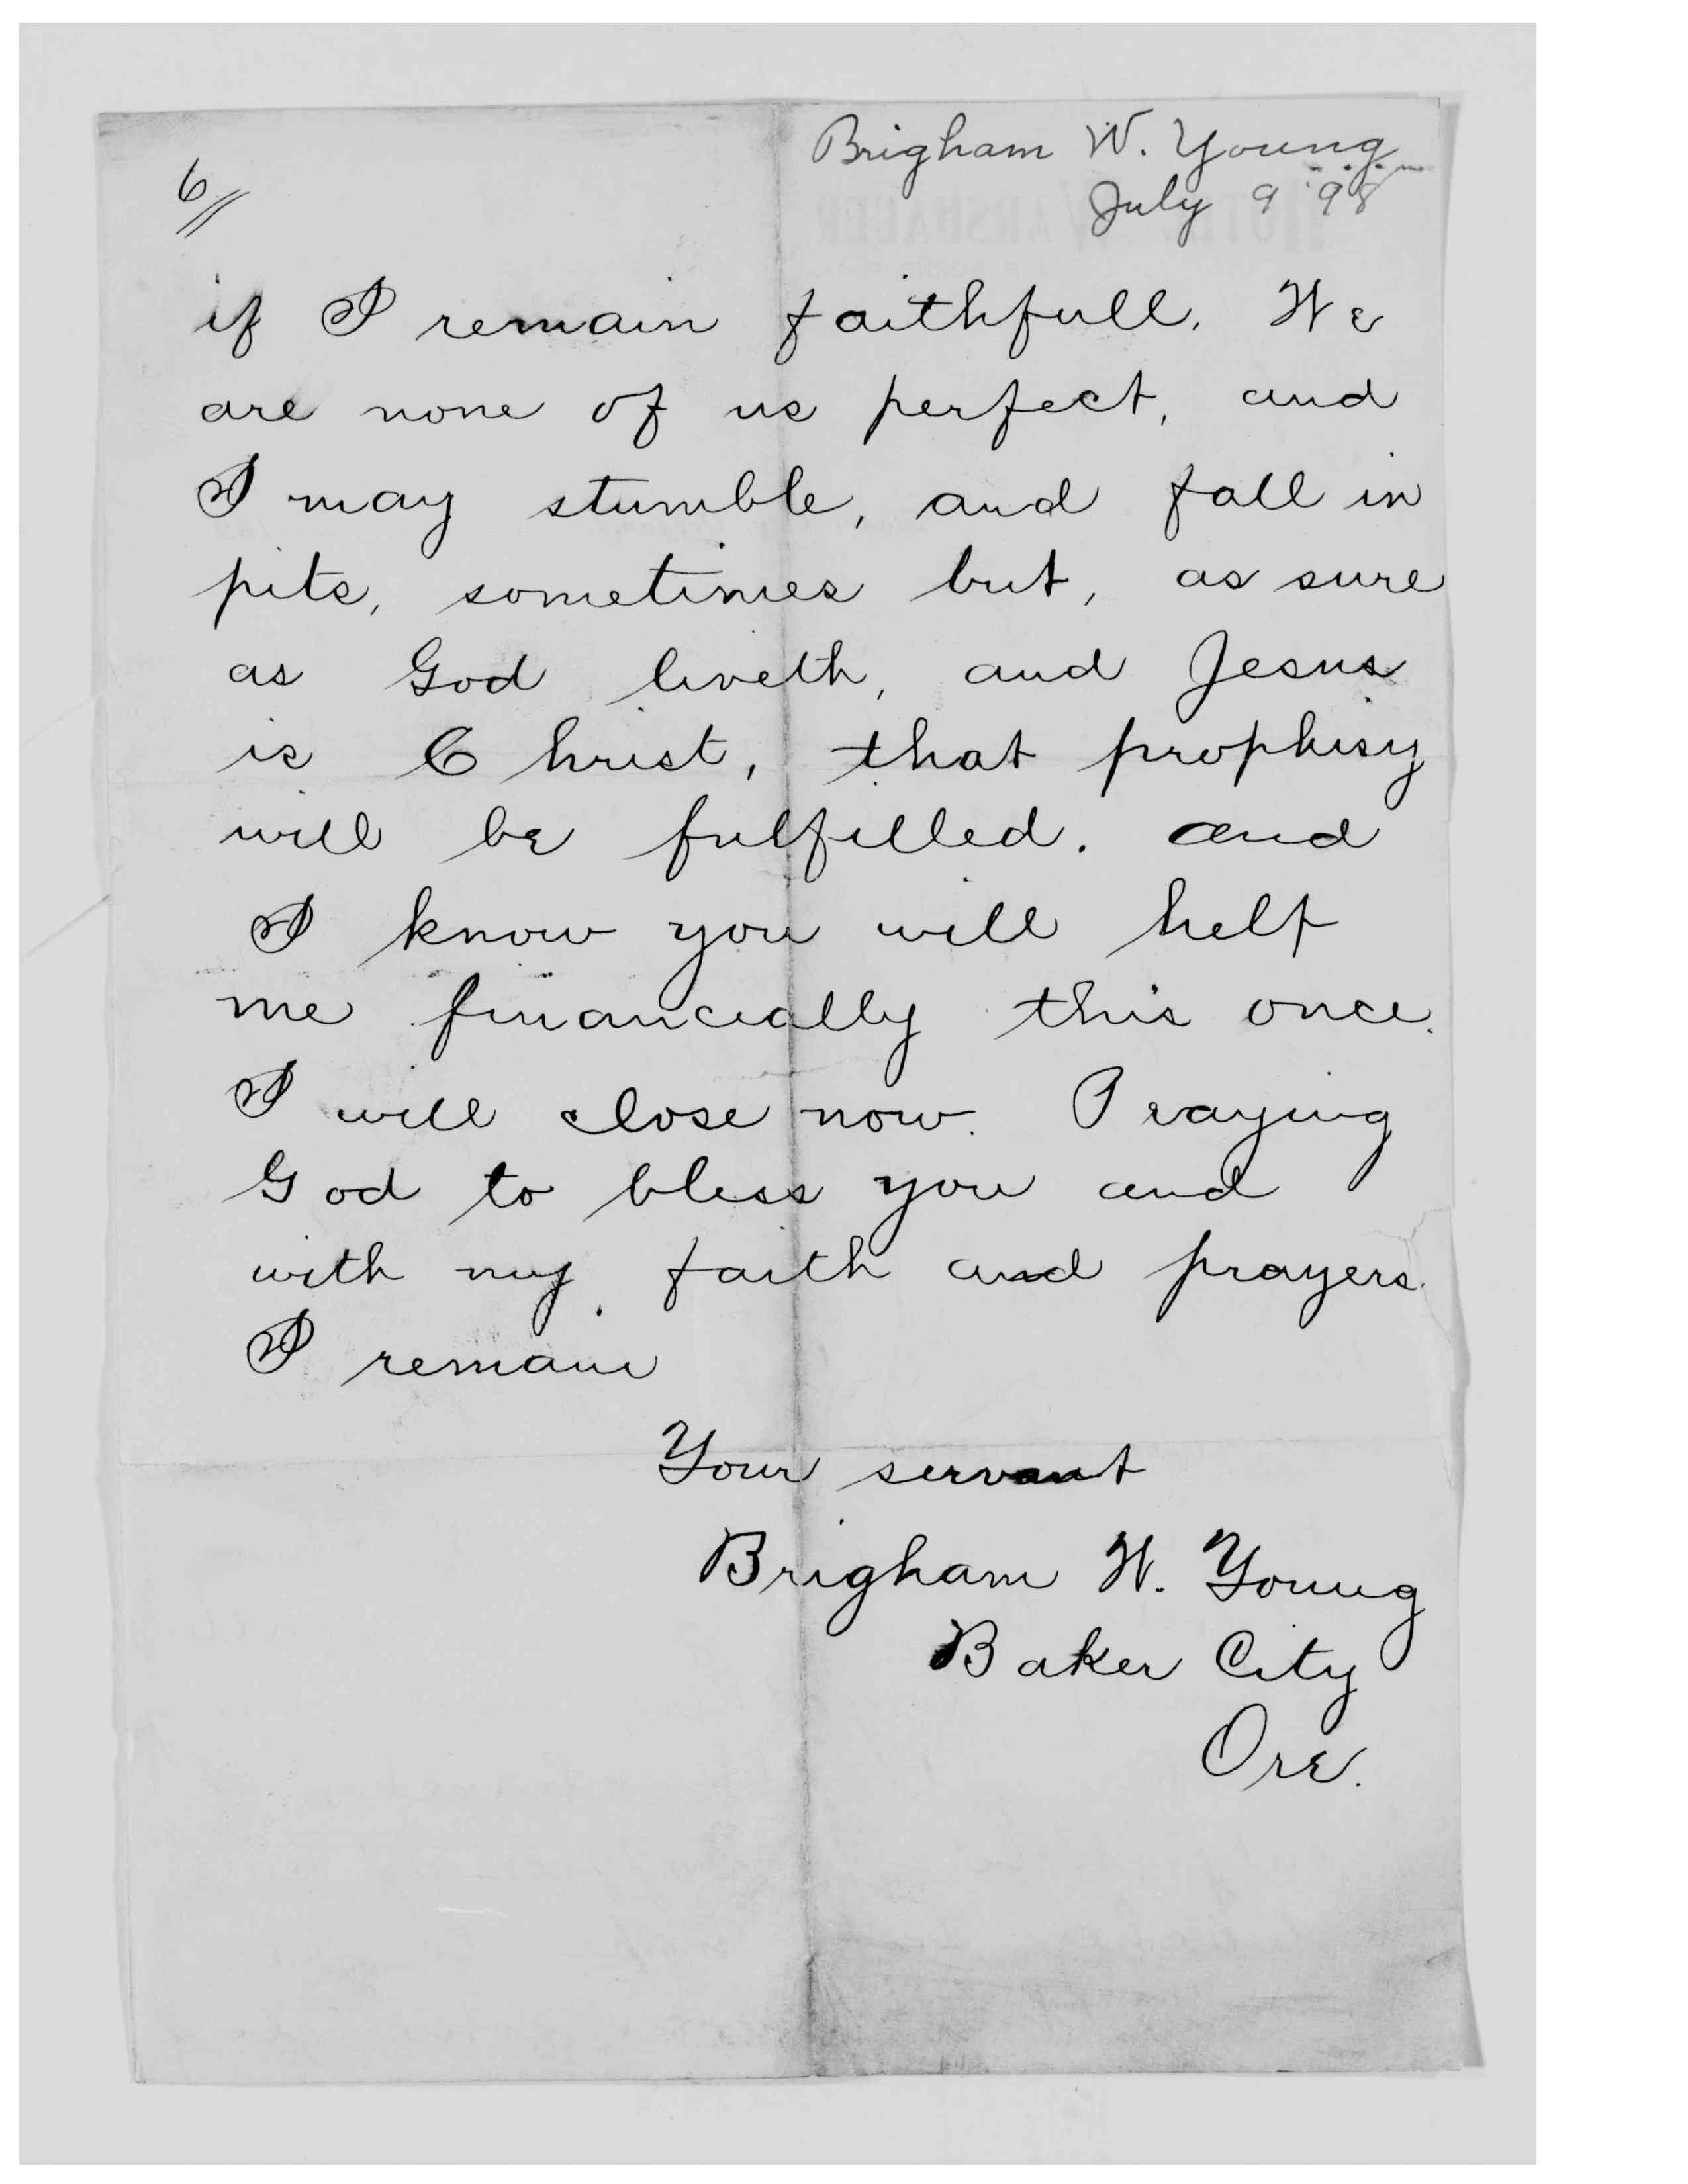 Brigham W. Young
July 9 '98
6
if I remain faithfull. We
are none of us perfect, and
I may stumble, and fall in
pits, sometimes but, as sure
as God liveth, and Jesus
is Christ, that prophisy
will be fulfilled. and
I know you will help
me financially this once.
I will close now. Praying
God to bless you and
with my faith and prayers.
I remain
Your servant
Brigham W. Young
Baker City
Ore.